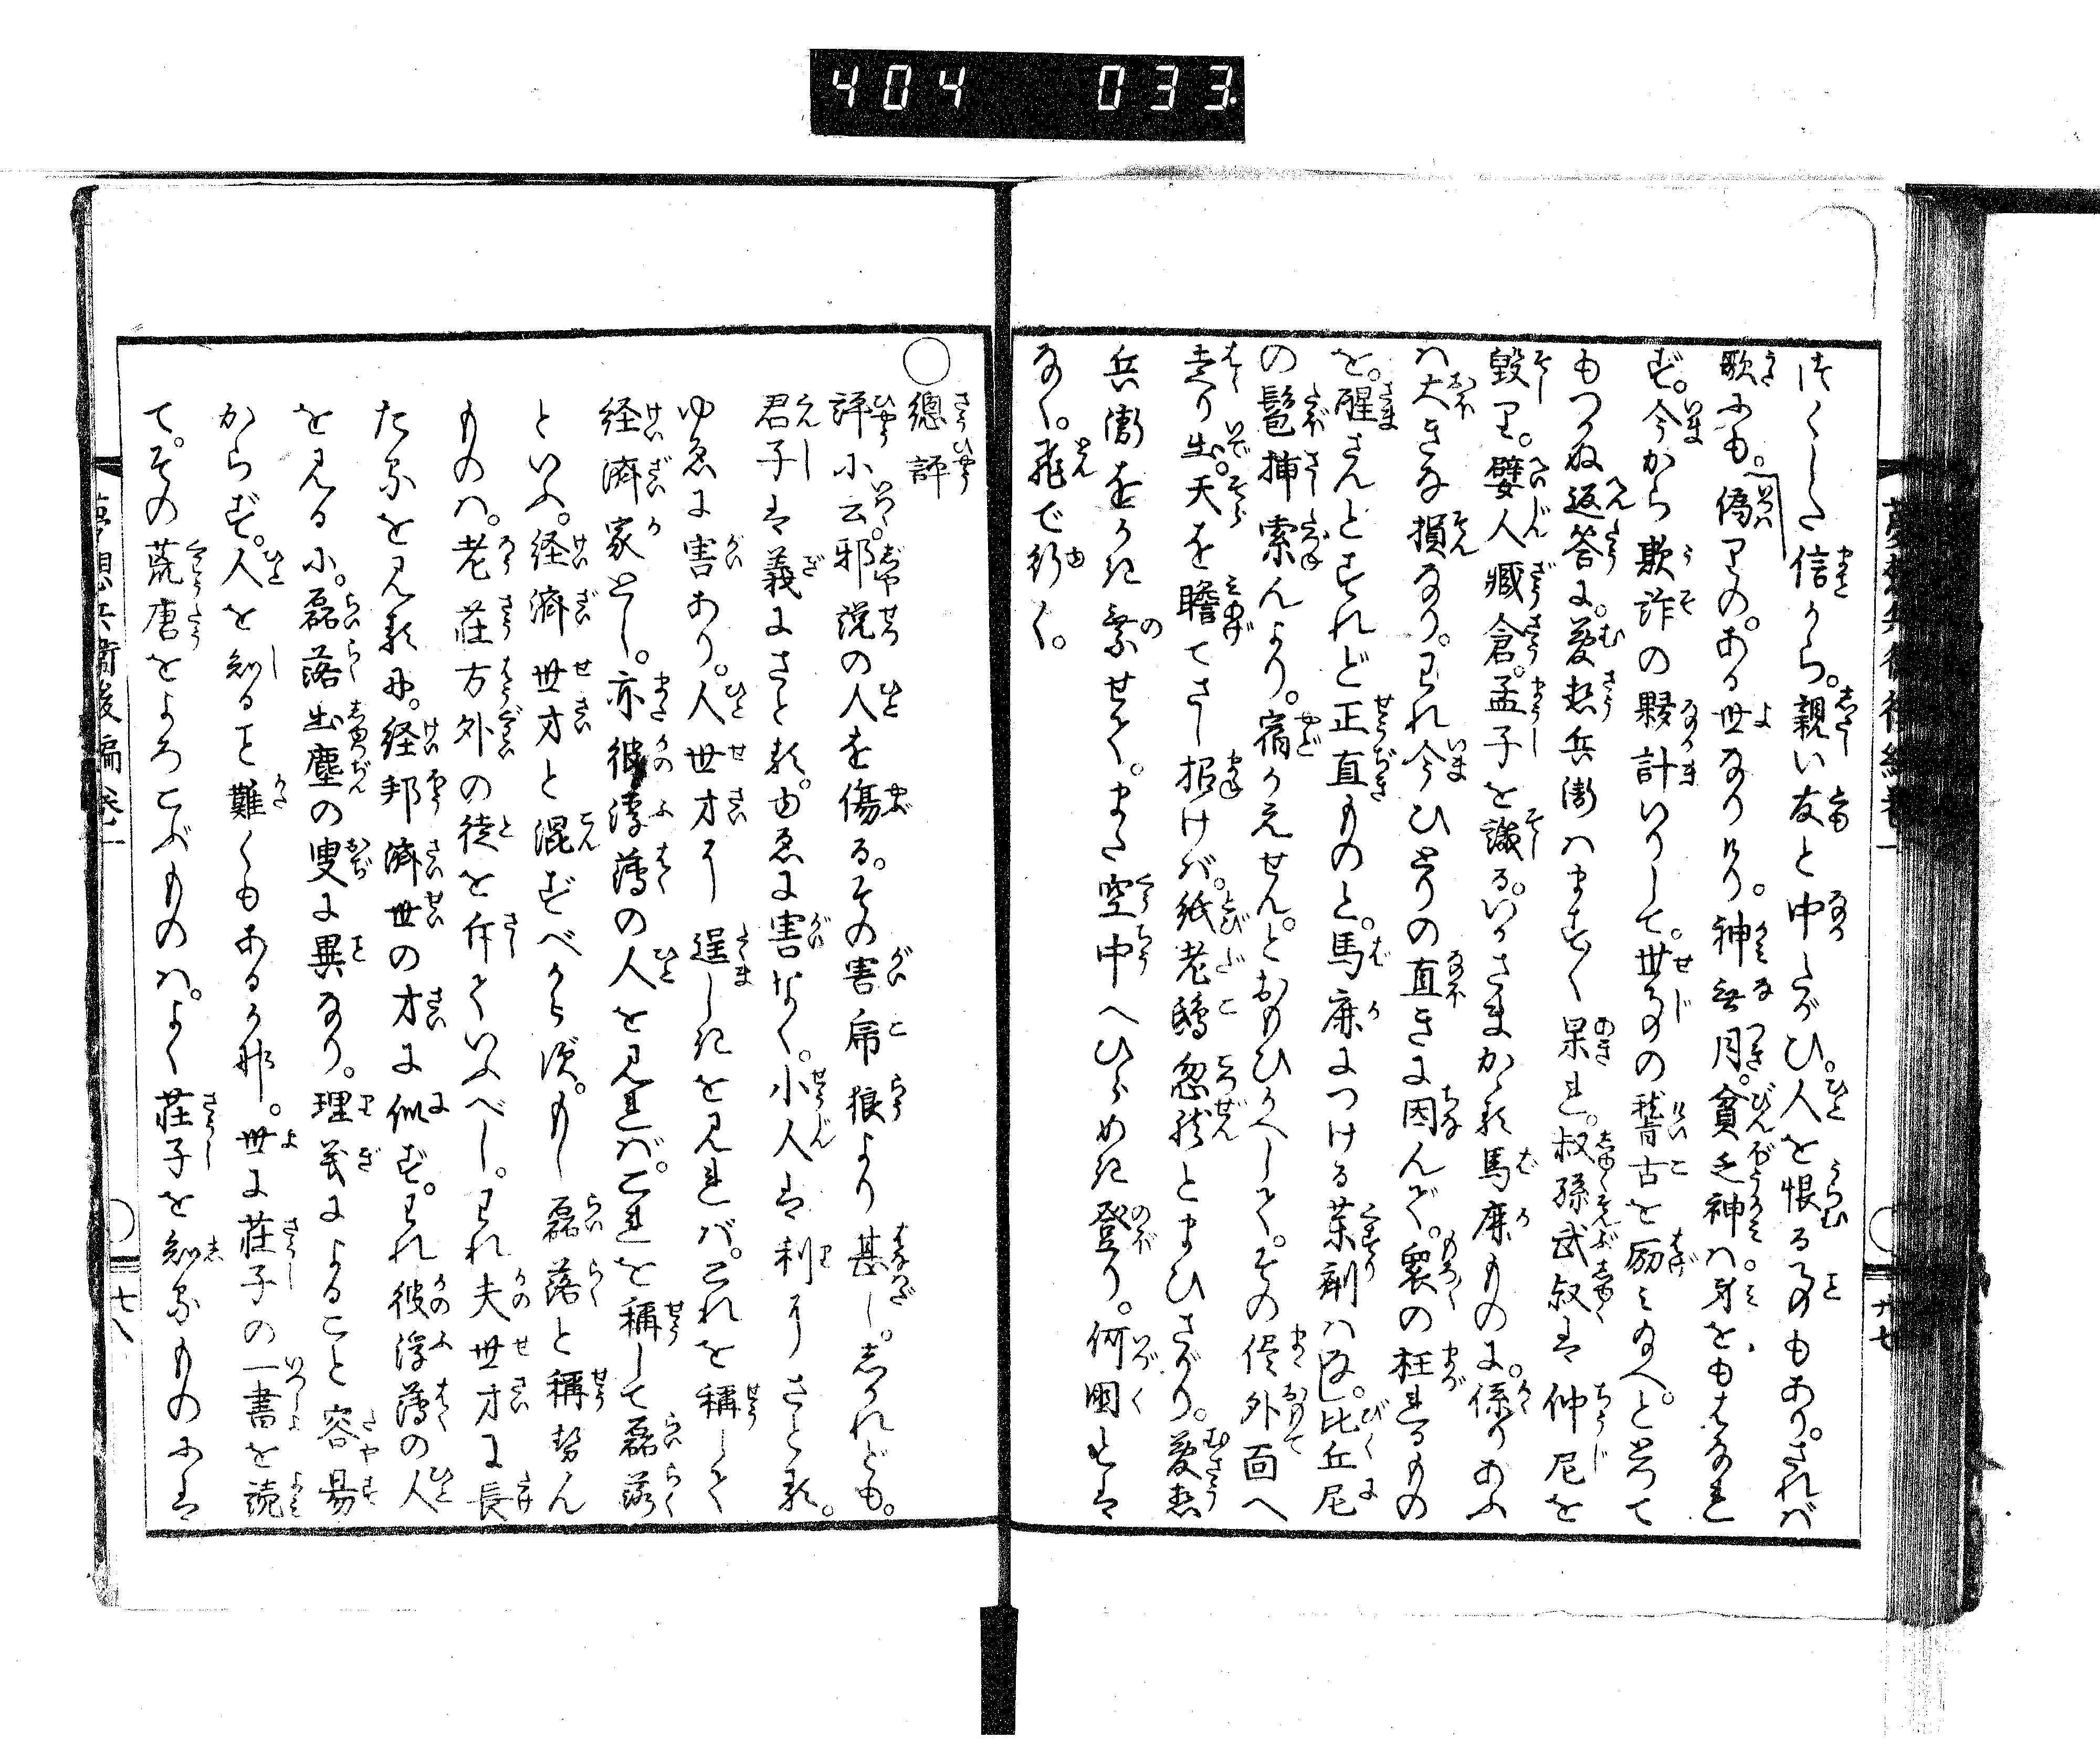 404 033.
はくした信から。親い友と中たがひ。人を恨る事もあり。されば
歌にも。偽りの。ある世なりけり。神無月。貧乏神は身をもはなれ
ず。今から欺詐の夥計いりして。世事の稽古を励みなへ。と
もつかぬ返答に。夢想兵衛はますく呆れ。叔孫武叔は仲尼を
毀り。嬖人臧倉。孟子を譏る。いかさまかゝる馬鹿ものに。係りあふ
は大きな損なり。われ今ひとりの直きに因んで。衆の枉れるもの
を。醒さんとすれど正直ものと。馬鹿につける薬剤はなし。比丘尼
の髱揷索んより。宿かえせん。とおもひかへして。その侭外面へ
走り出。天を瞻てさし招けば。紙老鴟忽然とまひさがり。夢想
兵衛をうき乗せて。また空中へひらめき登り。何国とは
なく。飛で行く。
夢想兵衛後編巻一 廿七
○總評
評に云。邪説の人を傷る。その害乕狼より甚し。しかれども。
君子は義にさとる。ゆゑに害なく。小人は利にさとる。
ゆゑに害あり。人世才に逞しきを見れば。これを称して
経済家とし。亦彼浮薄の人を見れば。これを称して磊落
といふ。経済世才と混ずべからず。もし磊落と称せん
ものは。老荘方外の徒を斥ていふべし。われ夫世才に長
たるを見るに。経邦済世の才に似ず。われ彼浮薄の人
を見るに。磊落出塵の叟に異なり。理義によること容易
からず。人を知ること難くもあるか那。世に荘子の一書を読
て。その荒唐をよろこぶものは。よく荘子を知るものには
夢想兵衛後編巻一 廿八